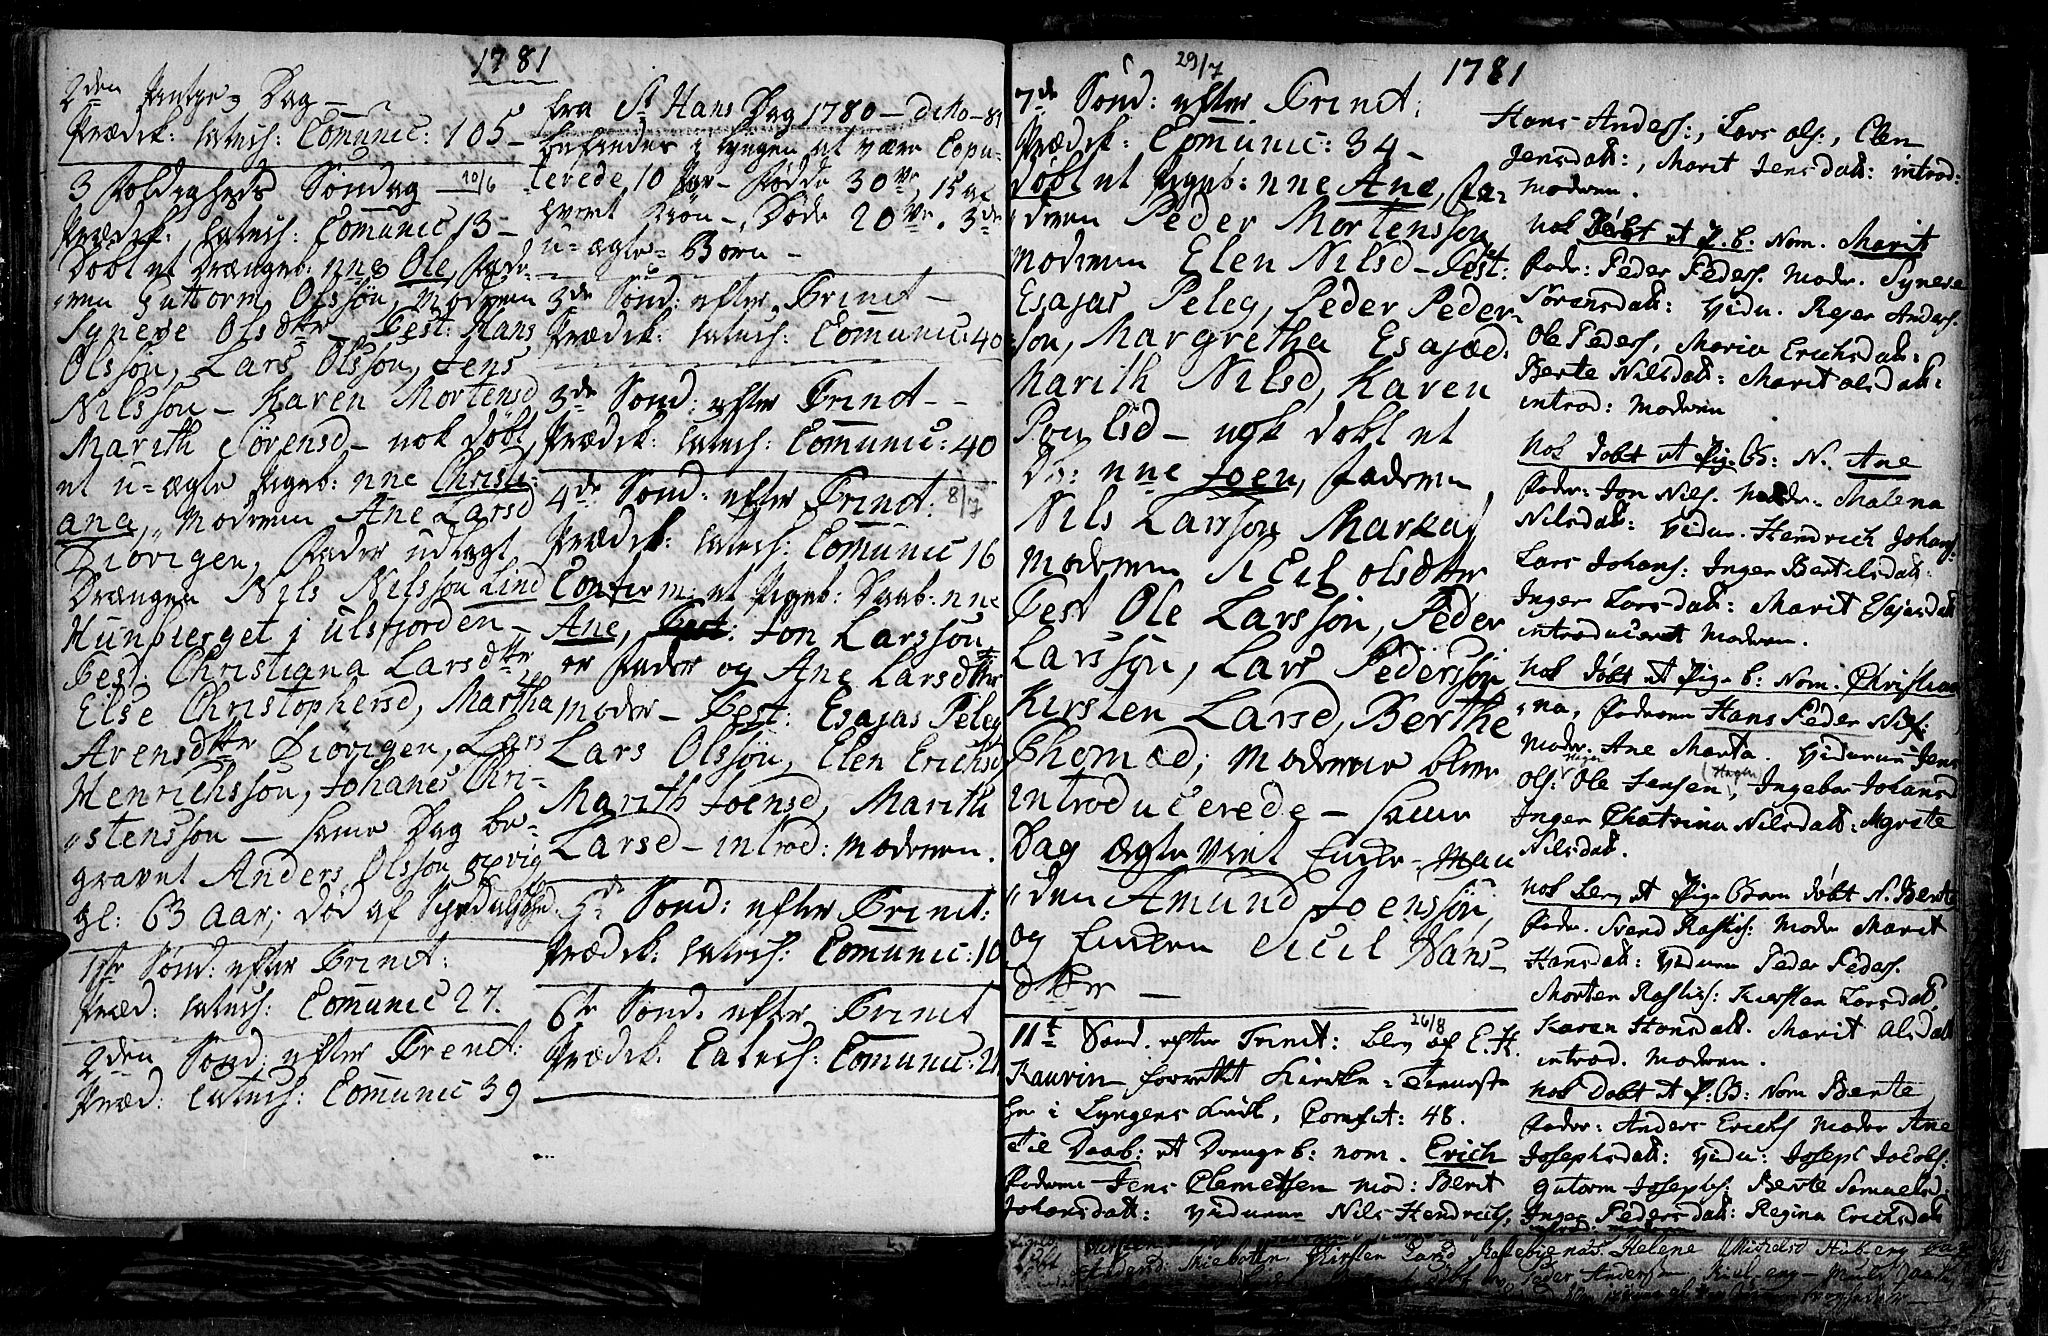 1781
2den Pintze Dag —
Prædik: Catech: Com̅unic: 105 —
3 foldigheds Søndag — 10/6
Prædik: Catech: Com̅unic 13 —
Døbt et Drængeb: nne Ole, fade-
ren Guttorm Olssøn, Moderen
Syneve Olsdtr Test: Hans
Olssøn, Lars Olssøn, Jens
Nilssøn — Karen Mortensd
Marith Sörensd — nok døbt
et u-ægte Pigeb: nne Christi-
ana, Moderen Ane Larsd
Diövigen, Fader udlagt
Drængen Nils Nilssøn Lind
Hunbierget i Ulsfjorden —
Test: Christiana Larsdtr
Else Christophersd, Martha
Arensdtr Diövigen, Lars
Henrichssøn, Johanes Chri-
stenssøn — samme Dag be-
gravet Anders Olssøn
gl: 63 aar, død af
1ste Sønd: efter Trinit:
Præd: Catech: Com̅unic 27.
2den Sønd: efter Trinit:
Præd: Catech: Com̅unic 39
fra St Hans Dag 1780 — dito — 81
befindes i Lyngen at være Copu-
lerede 10 Par — Fødde 30ve, 15 af
hvert Kiøn —, Døde 20ve. 3de
u-ægte Børn —
3de Sønd: efter Trinit —
Prædik: Catech: Com̅unic: 40
3de Sønd: efter Trinit —
Prædik: Catech: Com̅unic: 40
4de Sønd: efter Trinit: 8/7
Prædik: Catech: Com̅unic 16
Confirm: et Pigeb: Daab: nne
Ane, Test: Jon Larssøn
er Fader og Ane Larsdtr
Moder — Test: Esajas Peleg
Lars Olssøn, Elen Erichsd
Marith Joensd, Marith
Larsd — introd: Moderen.
5te Sønd: efter Trinit:
Prædik: Catech: Com̅unic: 10
6te Sønd: efter Trinit
Prædik: Catech: Com̅unic: 21
1781
29/7
7de Sønd: efter Trinit:
Prædik: Com̅unic: 34 —
døbt et Pigeb: nne Ane, Fa-
deren Peder Mortenssøn
Moderen Elen Nilsd — Test:
Esajas Peleg, Peder Peder-
søn, Margretha Esajæd:
Marith Nilsd, Karen
Poulsd — nok døbt et
Db: nne Joen, Faderen
Nils Larssøn
Moderen Sicil Olsdtr
Test Ole Larssøn, Peder
Larssøn, Lars Pederssøn
Kirsten Larsd, Berthe
Thomæd; Mødrene blev
introducerede — samme
Dag ægteviet Enke-Man
den Amund Joenssøn
og Enken Sicil Hans-
dtter —
11te Sønd. efter Trinit: 26/8 blev af E. H.
Kaurin forrettet Kirke-Tieneste
her i Lyngens Kirk, Comfit: 48.
Til Daab: et Drengeb: nom. Erich
Faderen Jens Clemetsen Mod: Berit
Johansdatt: Viduene Nils Hendrichs,
Hans Anders:, Lars Ols:, Elen
Jensdatt:, Marit Jensdatt: introd:
Moderen.
Nok døbt et P. b: Nom. Marit
Fader: Peder Peders. Moder. Synese
Sörensdatt: Vidn. Rejer Anders.
Ole Peders, Maria Erichsdatt:
Berte Nilsdatt: Marit Olsdatt:
introd: Moderen
Nok døbt et Pige B: N. Ane
Fader: Jon Niels. Moder: Malena
Nilsdatt: Vidne. Hendrich Johans:
Lars Johans: Inger Bertilsdatt:
Inger Larsdatt: Marit Esajasdatt
introduceret Moderen.
Nok døbt et Pige b: Nom. Christian-
na, Faderen Hans Peder Niels:
Moder. Ane Marta. Vidnene Jens
Ols: Ole Jensen (Hagen), Ingebor Johansd
Inger Chatrina Nilsdatt: Mgrete
Nilsdatt.
Nok blev et Pige Barn døbt N. Berte
Fader. Svend Raslis: Moder Marit
Hansdatt: Vidnene Peder Peders.
Morten Raslis: Kirsten Larsdatt
Karen Hansdatt. Marit Olsdatt
introd. Moderen.
Nok døbt et P: B: Nom Berte
Fader: Anders Erichs Moder Ane
Josephsdatt: Vidn: Joseph Jacobs:
Gutorm Josephs: Berte Samuelsd
Inger Pedersdatt: Regina Erichsdatt
introd: Moderen